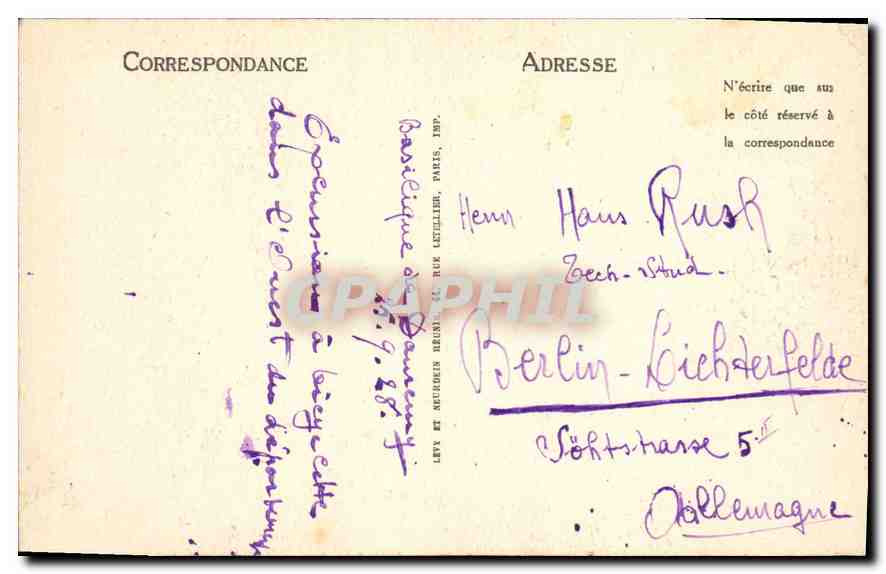 CORRESPONDANCE
ADRESSE
N'écrire que sur
le côté réservé à
la correspondance
Basilique de
25.9.28.
Excursion à bicyclette
dans l'Ouest du département
LEVY ET NEURDEIN RÉUNIS, 44, RUE LETELLIER, PARIS, IMP.
Herrn Hans Rusk
Tech-Stud.
Berlin-Lichterfelde
strasse 5 II
Allemagne
CPAPHIL